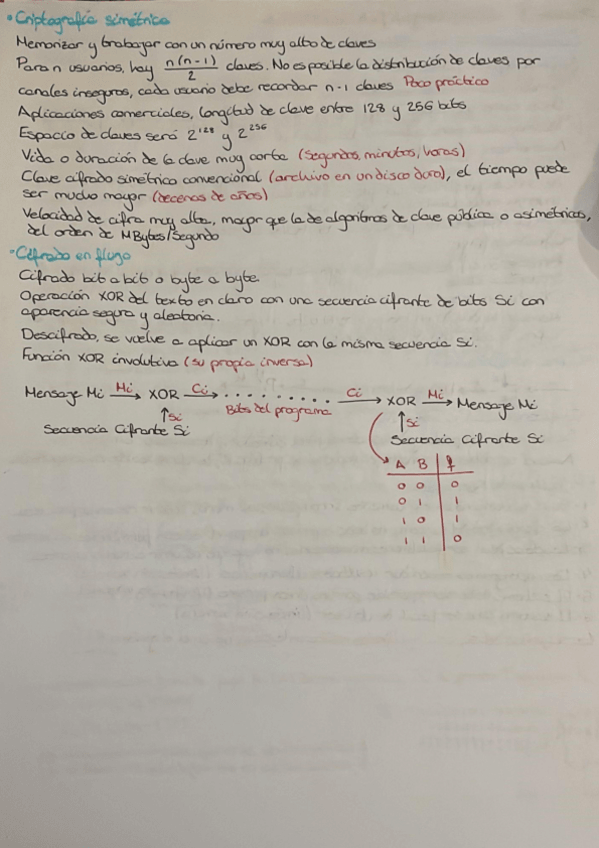 • Criptografía simétrica
Memorizar y trabajar con un número muy alto de claves
Para n usuarios, hay n(n-1)/2 claves. No es posible la distribución de claves por
canales inseguros, cada usuario debe recordar n-1 claves Poco práctico
Aplicaciones comerciales, longitud de clave entre 128 y 256 bits
Espacio de claves será 2^128 y 2^256
Vida o duración de la clave muy corta (segundos, minutos, horas)
Clave cifrado simétrico convencional (archivo en un disco duro), el tiempo puede
ser mucho mayor (decenas de años)
Velocidad de cifra muy alta, mayor que la de algoritmos de clave pública o asimétricos,
del orden de MBytes/segundo
• Cifrado en flujo
Cifrado bit a bit o byte a byte.
Operación XOR del texto en claro con una secuencia cifrante de bits Si con
apariencia segura y aleatoria.
Descifrado, se vuelve a aplicar un XOR con la misma secuencia Si.
Función XOR involutiva (su propia inversa)
Mensage Mi Mi → XOR Ci → . . . . . . . . . Ci → XOR Mi → Mensage Mi
Bits del programa
↑ Si ↑ Si
Secuencia Cifrante Si Secuencia Cifrante Si
A B f
0 0 0
0 1 1
1 0 1
1 1 0